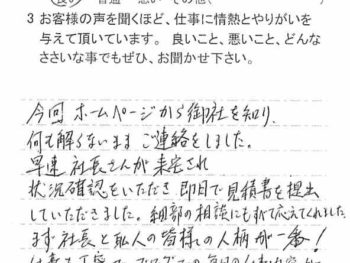 3 お客様の声を聞くほど、仕事に情熱とやりがいを
与えて頂いています。 良いこと、悪いこと、どんな
ささいな事でもぜひ、お聞かせ下さい。
今回 ホームページから御社を知り、
何も解らないまま ご連絡をしました。
早速 社長さんが 来宅され
状況確認をいただき 即日で 見積書を提出
していただきました。細部の相談にもすべて応えてくれました。
まず 社長と 職人の皆様の人柄が一番!